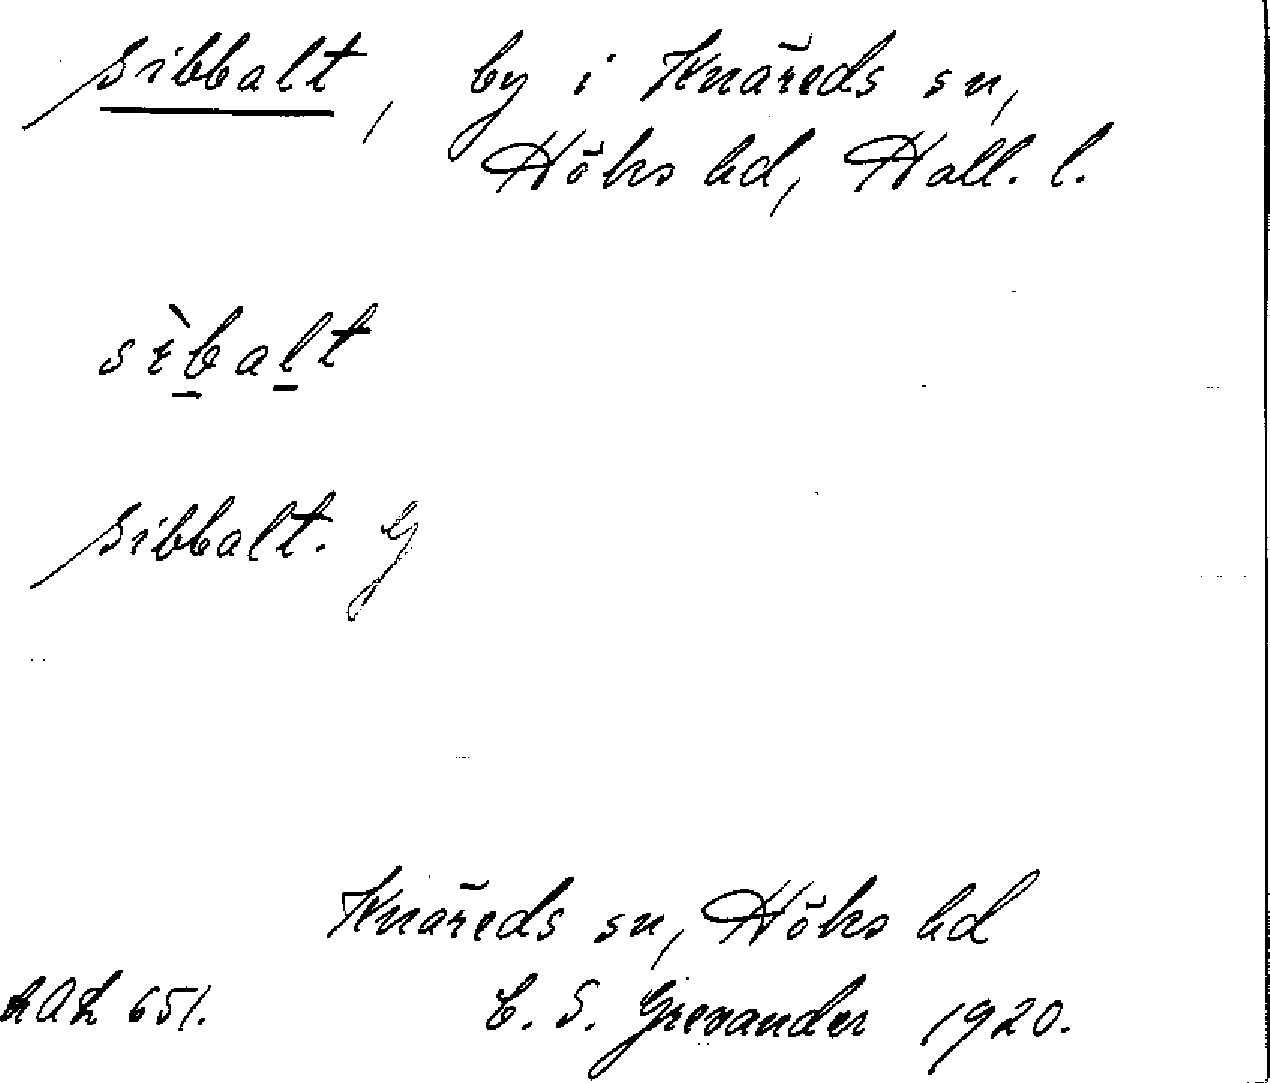 Sibbalt, by i Knäreds sn,
Höks hd, Hall. l.
sìbalt
Sibbalt. G
Knäreds sn, Höks hd
651. E. S. Grevander 1920.